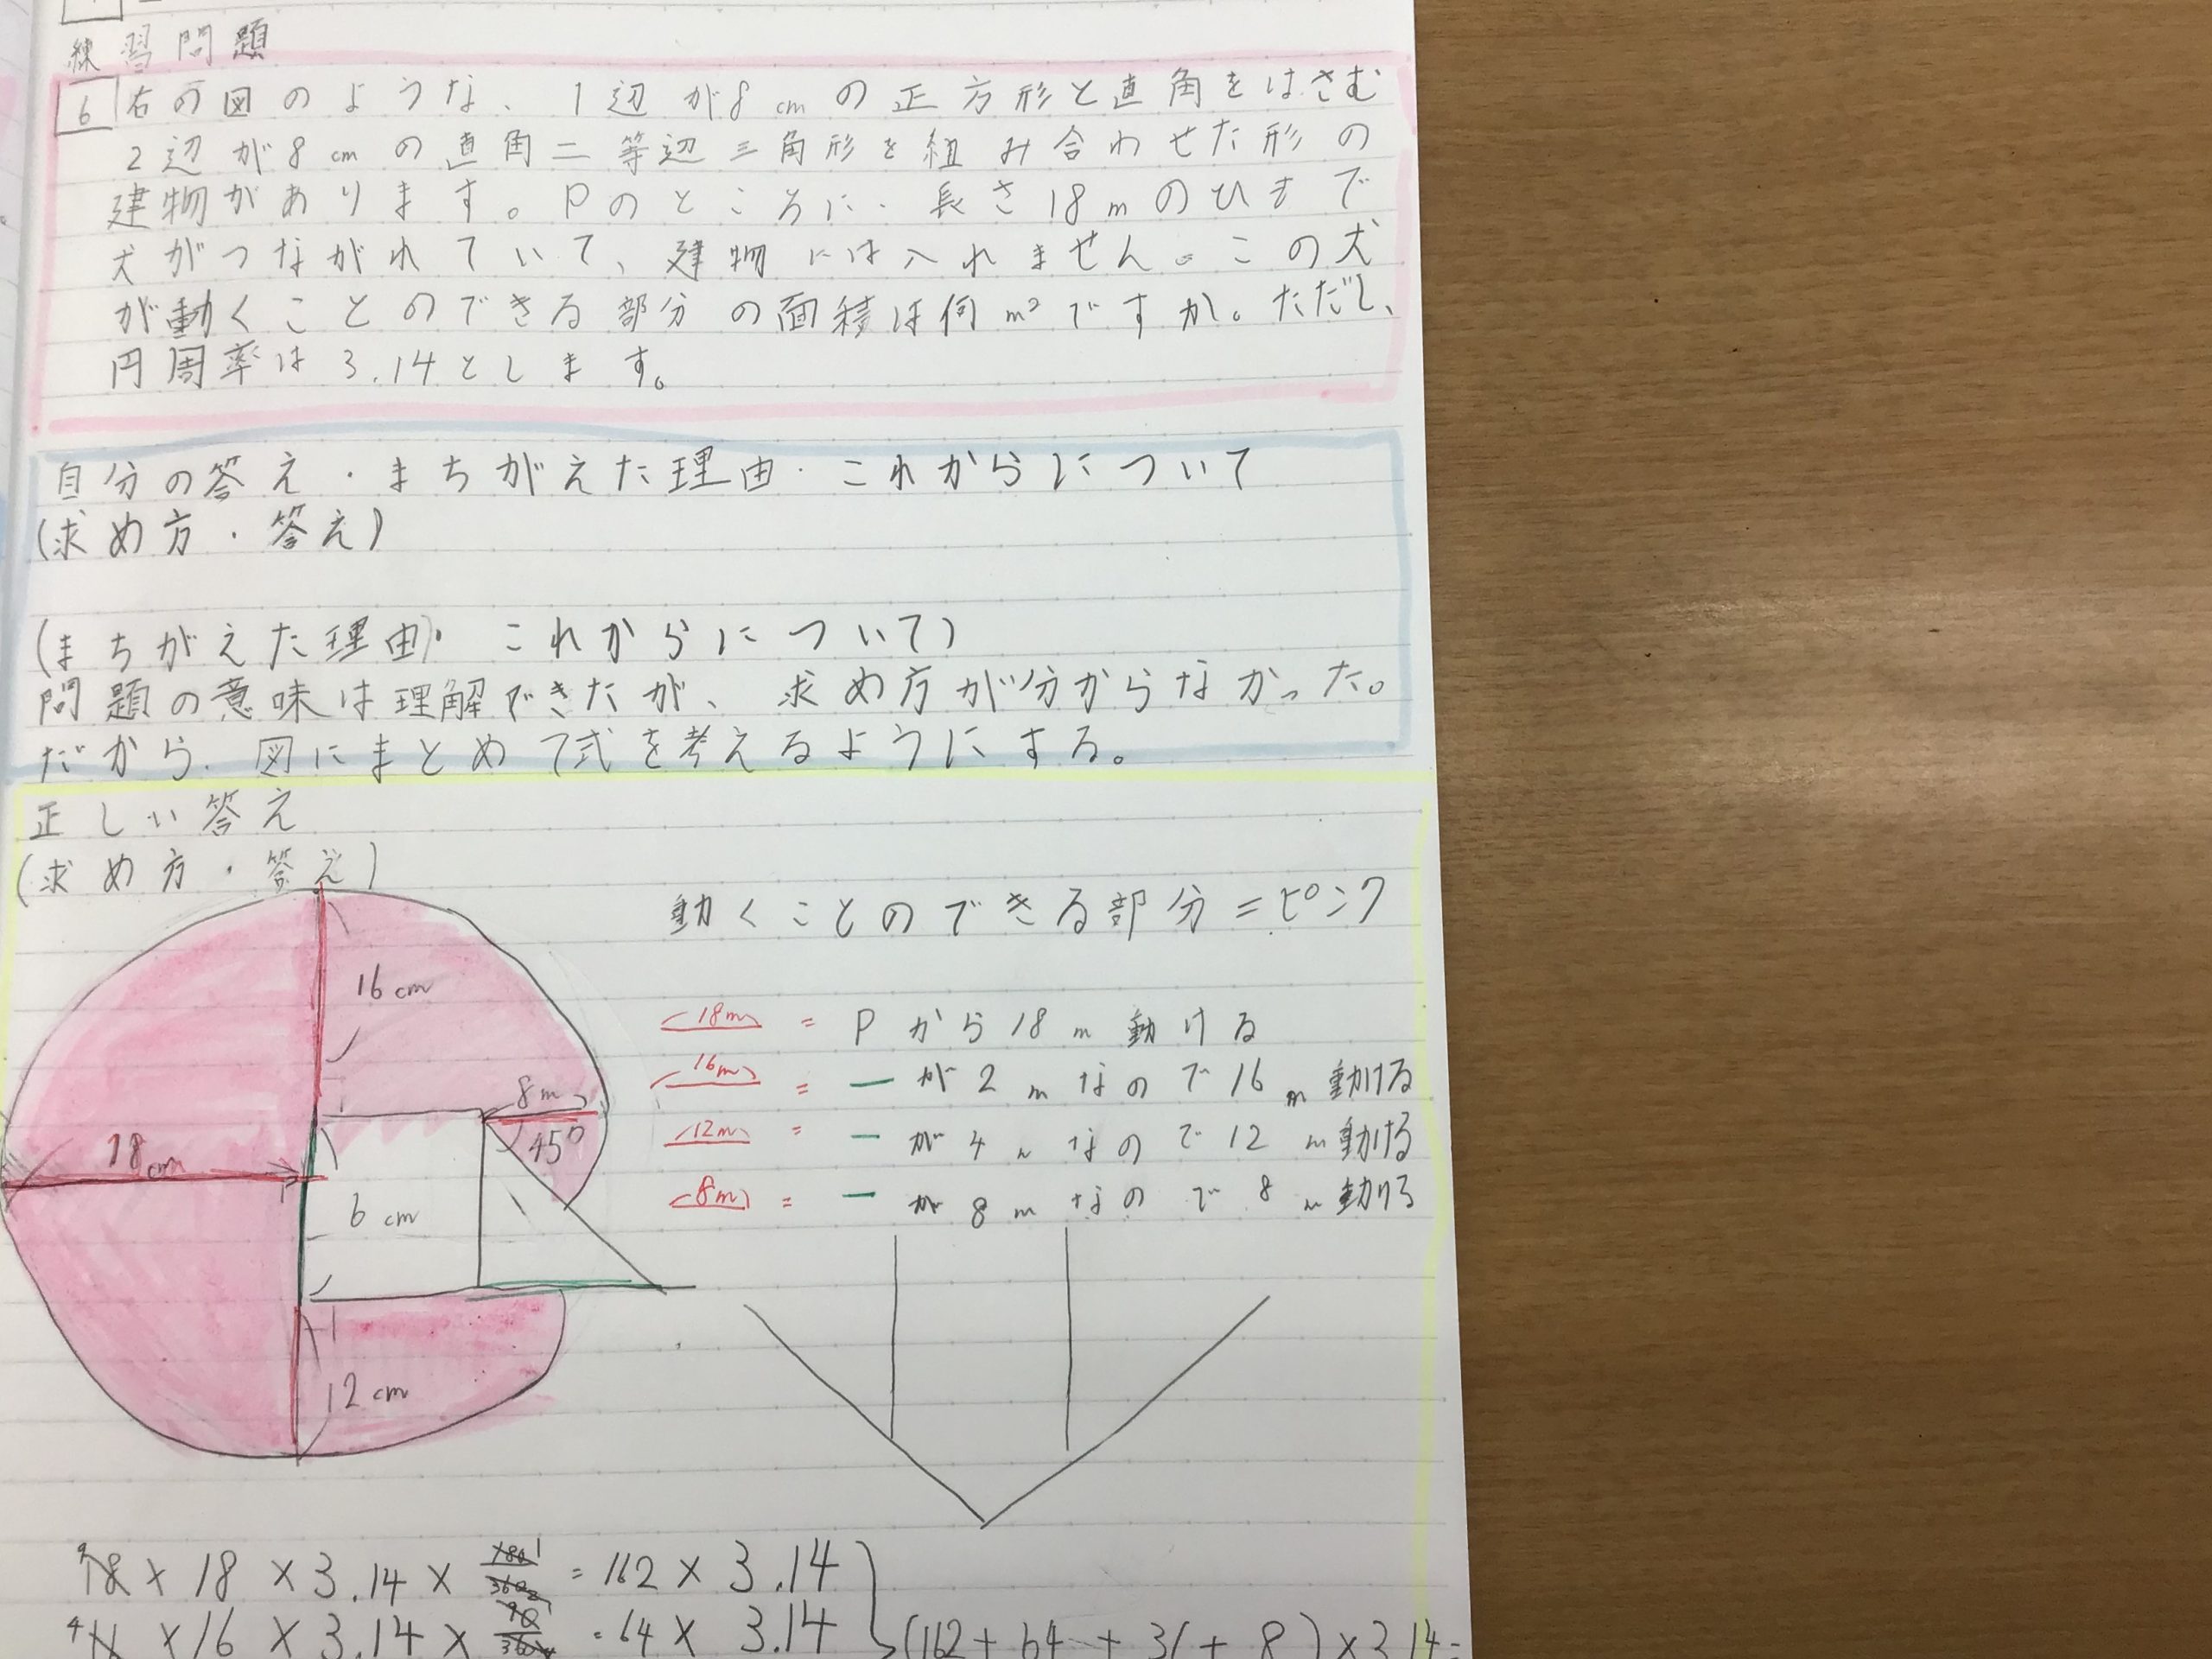 練習問題
6 右の図のような、1辺が8cmの正方形と直角をはさむ
2辺が8cmの直角二等辺三角形を組み合わせた形の
建物があります。Pのところに、長さ18mのひもで
犬がつながれていて、建物には入れません。この犬
が動くことのできる部分の面積は何m²ですか。ただし、
円周率は3.14とします。
自分の答え・まちがえた理由・これからについて
(求め方・答え)
(まちがえた理由・これからについて)
問題の意味は理解できたが、求め方が分からなかった。
だから、図にまとめて式を考えるようにする。
正しい答え
(求め方・答え)
動くことのできる部分=ピンク
16cm
8m
45°
18cm
P
6cm
12cm
18m = Pから18m動ける
16m = ーが2mなので16m動ける
12m = ーが4mなので12m動ける
8m = ーが8mなので8m動ける
18×18×3.14×180/360=162×3.14
×16×3.14×90/360=64×3.14
(162+64+31+8)×3.14=